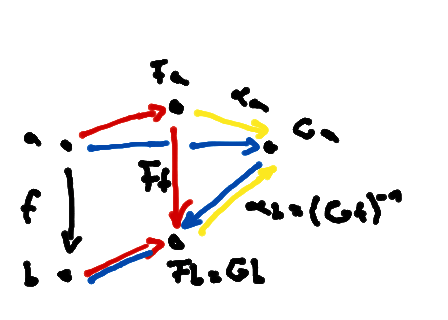 Fa
αa
a
Ga
Ff
f
αb = (Gf)⁻¹
b
Fb = Gb